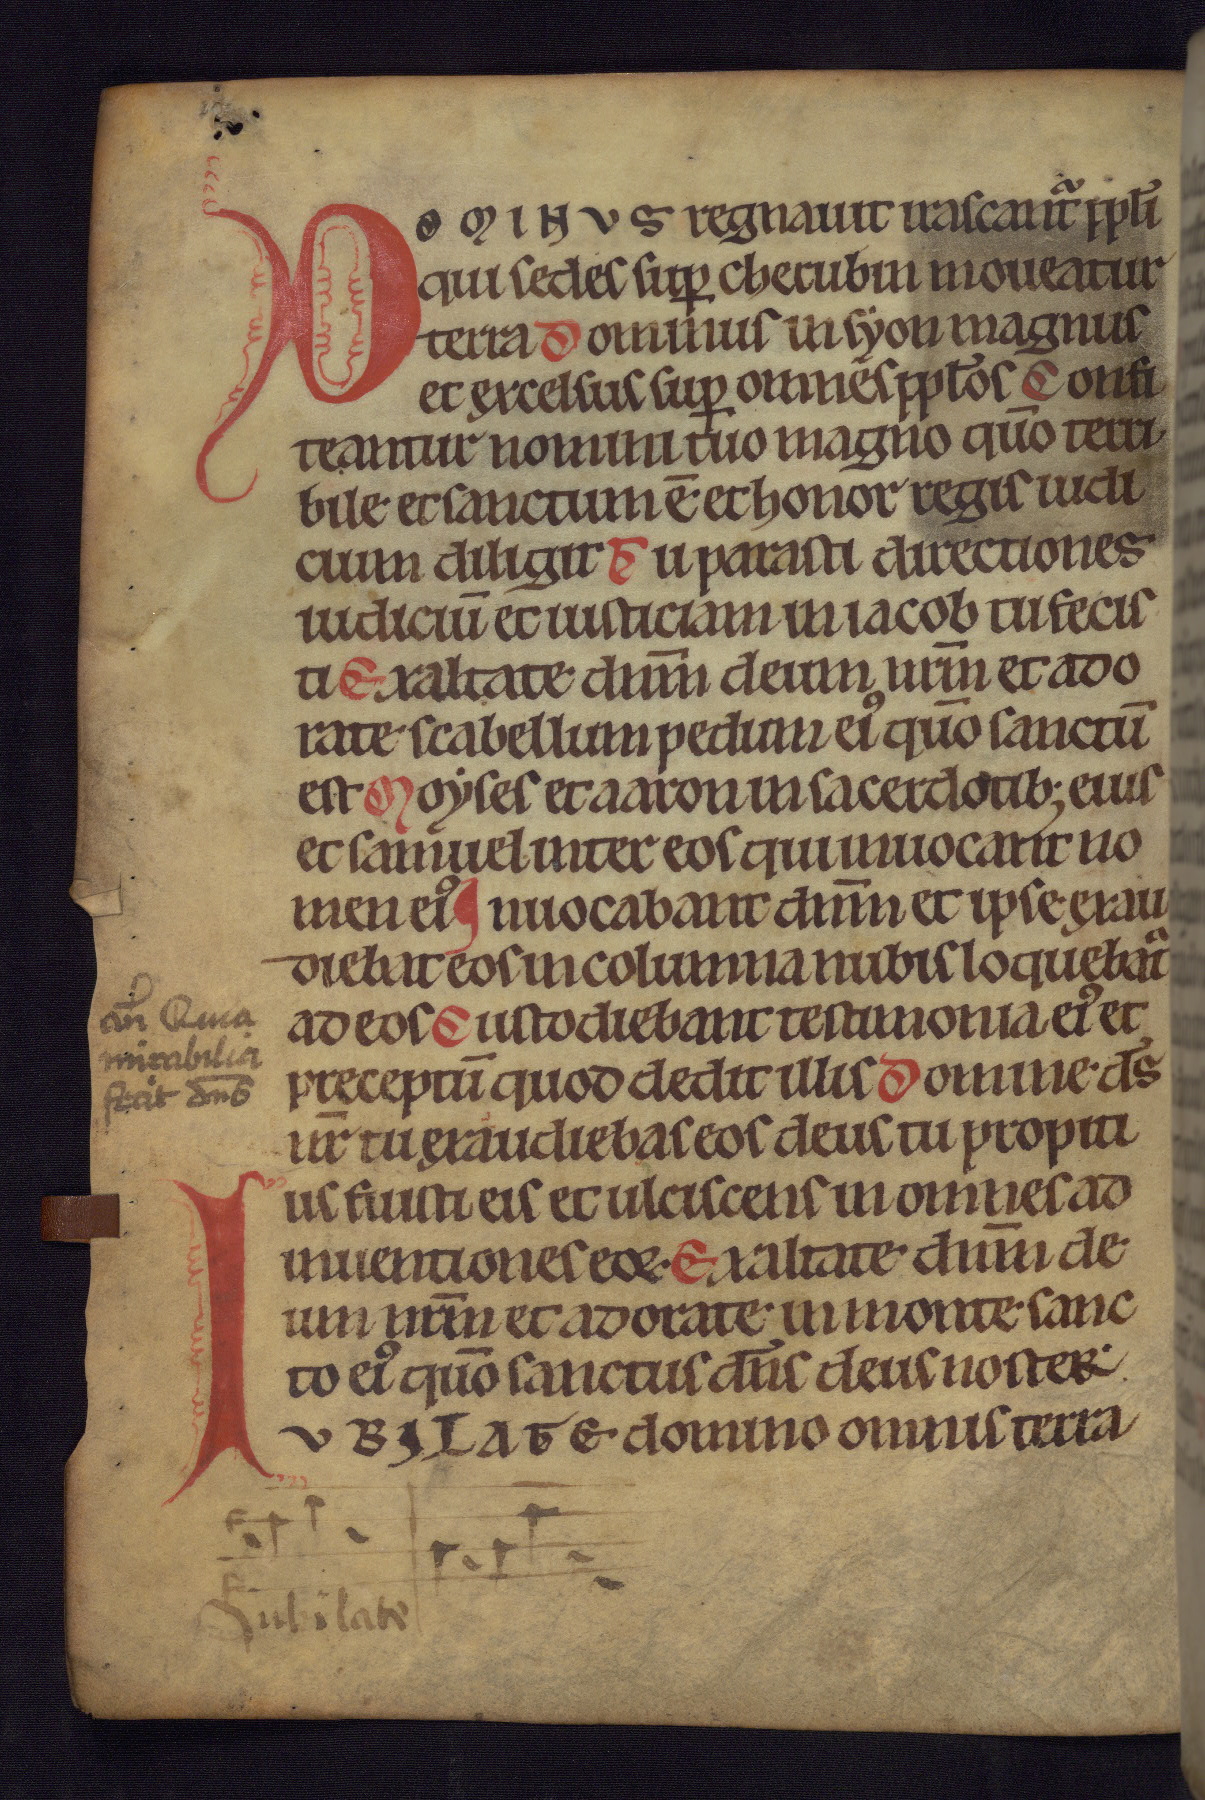 DOMINUS regnauit irascant᷑ ppl̄i
qui sedes sup̱ cherubin moueatur
terra Dominus in sẏon magnus
et excelsus sup̱ omnes ppl̄os Confi
teantur nomini tuo magno qm̄o terri
bile et sanctum ē et honor regis iudi
cium diligit Tu parasti directiones
iudiciū et iusticiam in iacob tu fecis
ti Exaltate dn̄m deum nr̄m et ado
rate scabellum pedum eiꝰ qūo sanctū
est Moẏses et aaron in sacerdotib; eius
et samuel inter eos qui inuocant no
men eiꝰ Inuocabant dn̄m et ipse exau
diebat eos in columna nubis loquebat᷑
ad eos Custodiebant testimonia eiꝰ et
preceptū quod dedit illis Domine ds̄
nr̄ tu exaudiebas eos deus tu propiti
us fuisti eis et ulciscens in omnes ad
inuentiones eoꝝ Exaltate dn̄m de
um nr̄m et adorate in monte sanc
to eiꝰ qūo sanctus dn̄s deus noster
IUBILATE domino omnis terra
an̄ Quia
mirabilia
fecit dn̄s
Jubilate